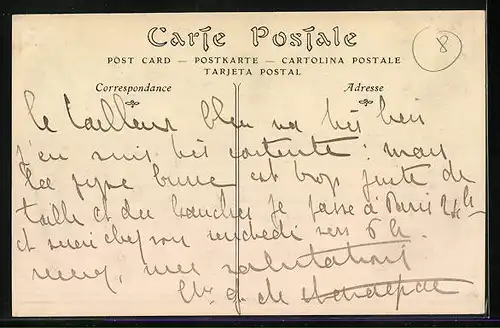 Carte Postale
8
POST CARD — POSTKARTE — CARTOLINA POSTALE
TARJETA POSTAL
Correspondance
Adresse
Le tailleur bleu va très bien
j'en suis très contente : mais
la jupe brune est trop juste de
taille et des hanches je passe à Paris 24h
et serai chez vous vendredi vers 6h.
merci, mes salutations
g. de